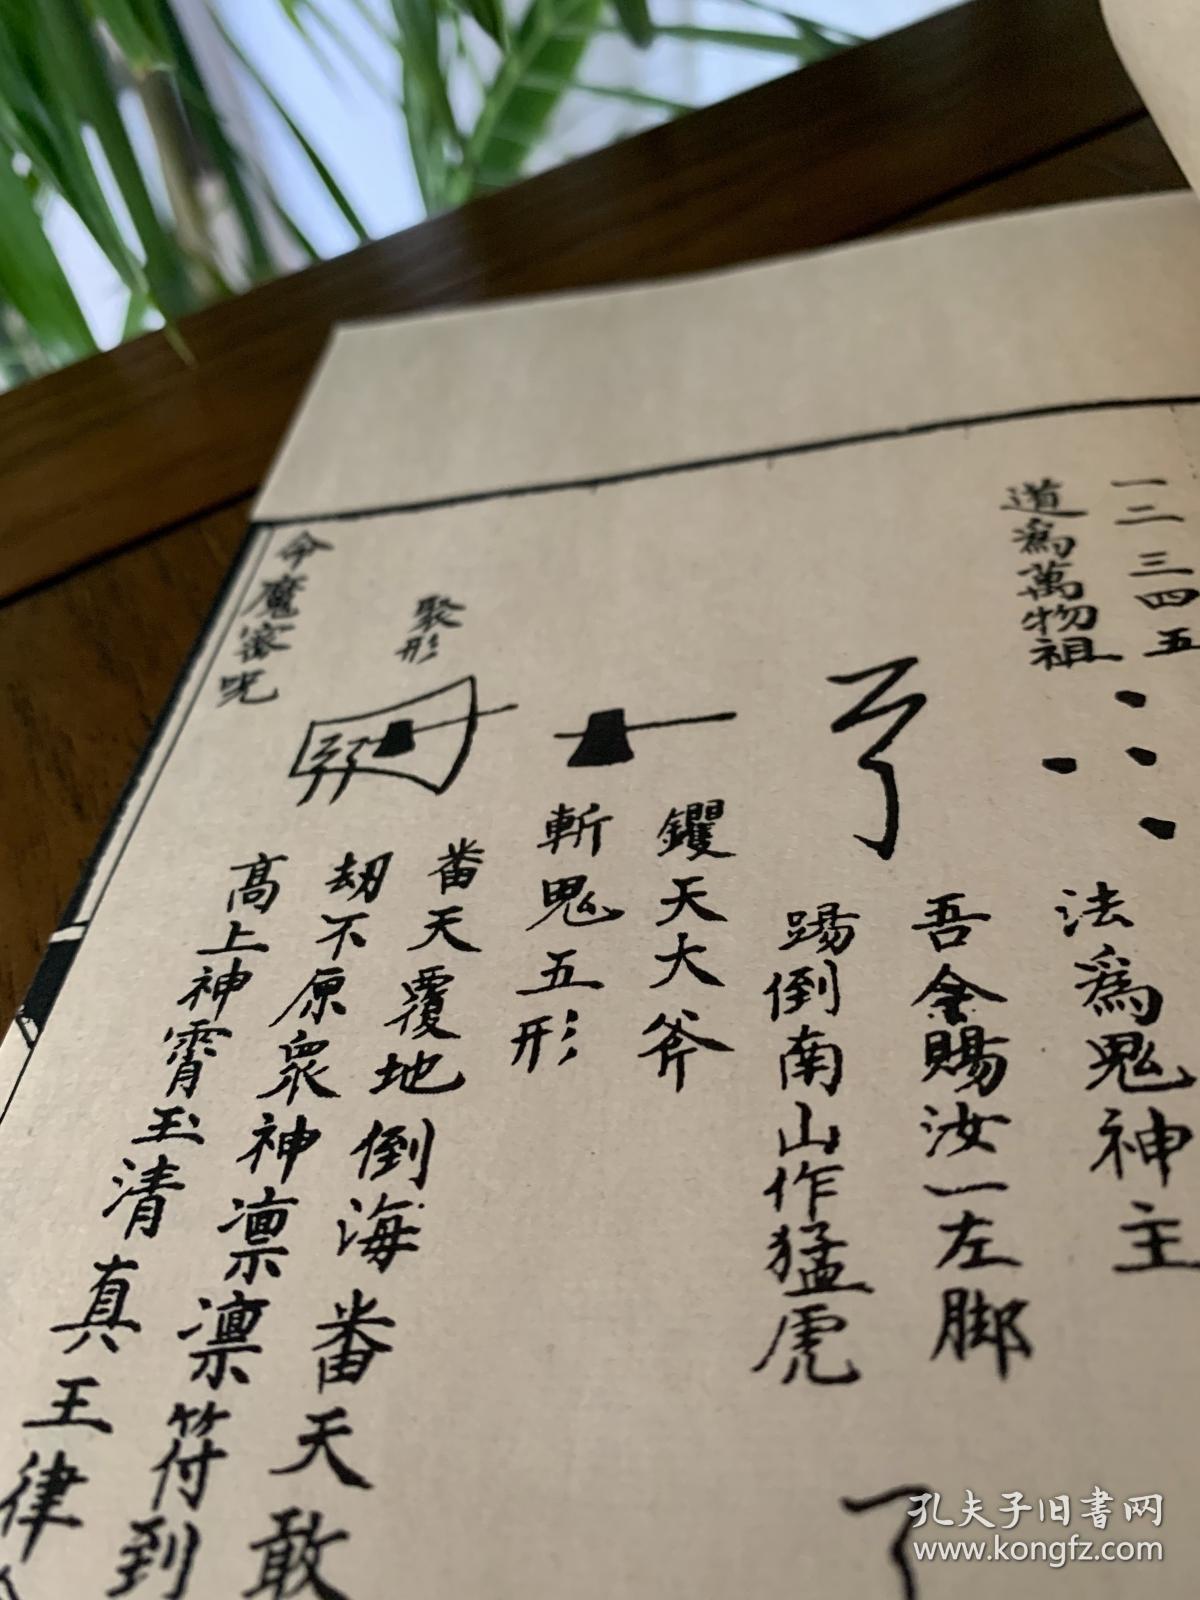 一二三四五
道為萬物祖
法為鬼神主
吾令賜汝一左脚
踢倒南山作猛虎
钁天大斧
斬鬼五形
聚形
番天覆地倒海番天敢
劫不原衆神凛凛符到
高上神霄玉清真王律
命魔密咒
孔夫子旧书网
www.kongfz.com